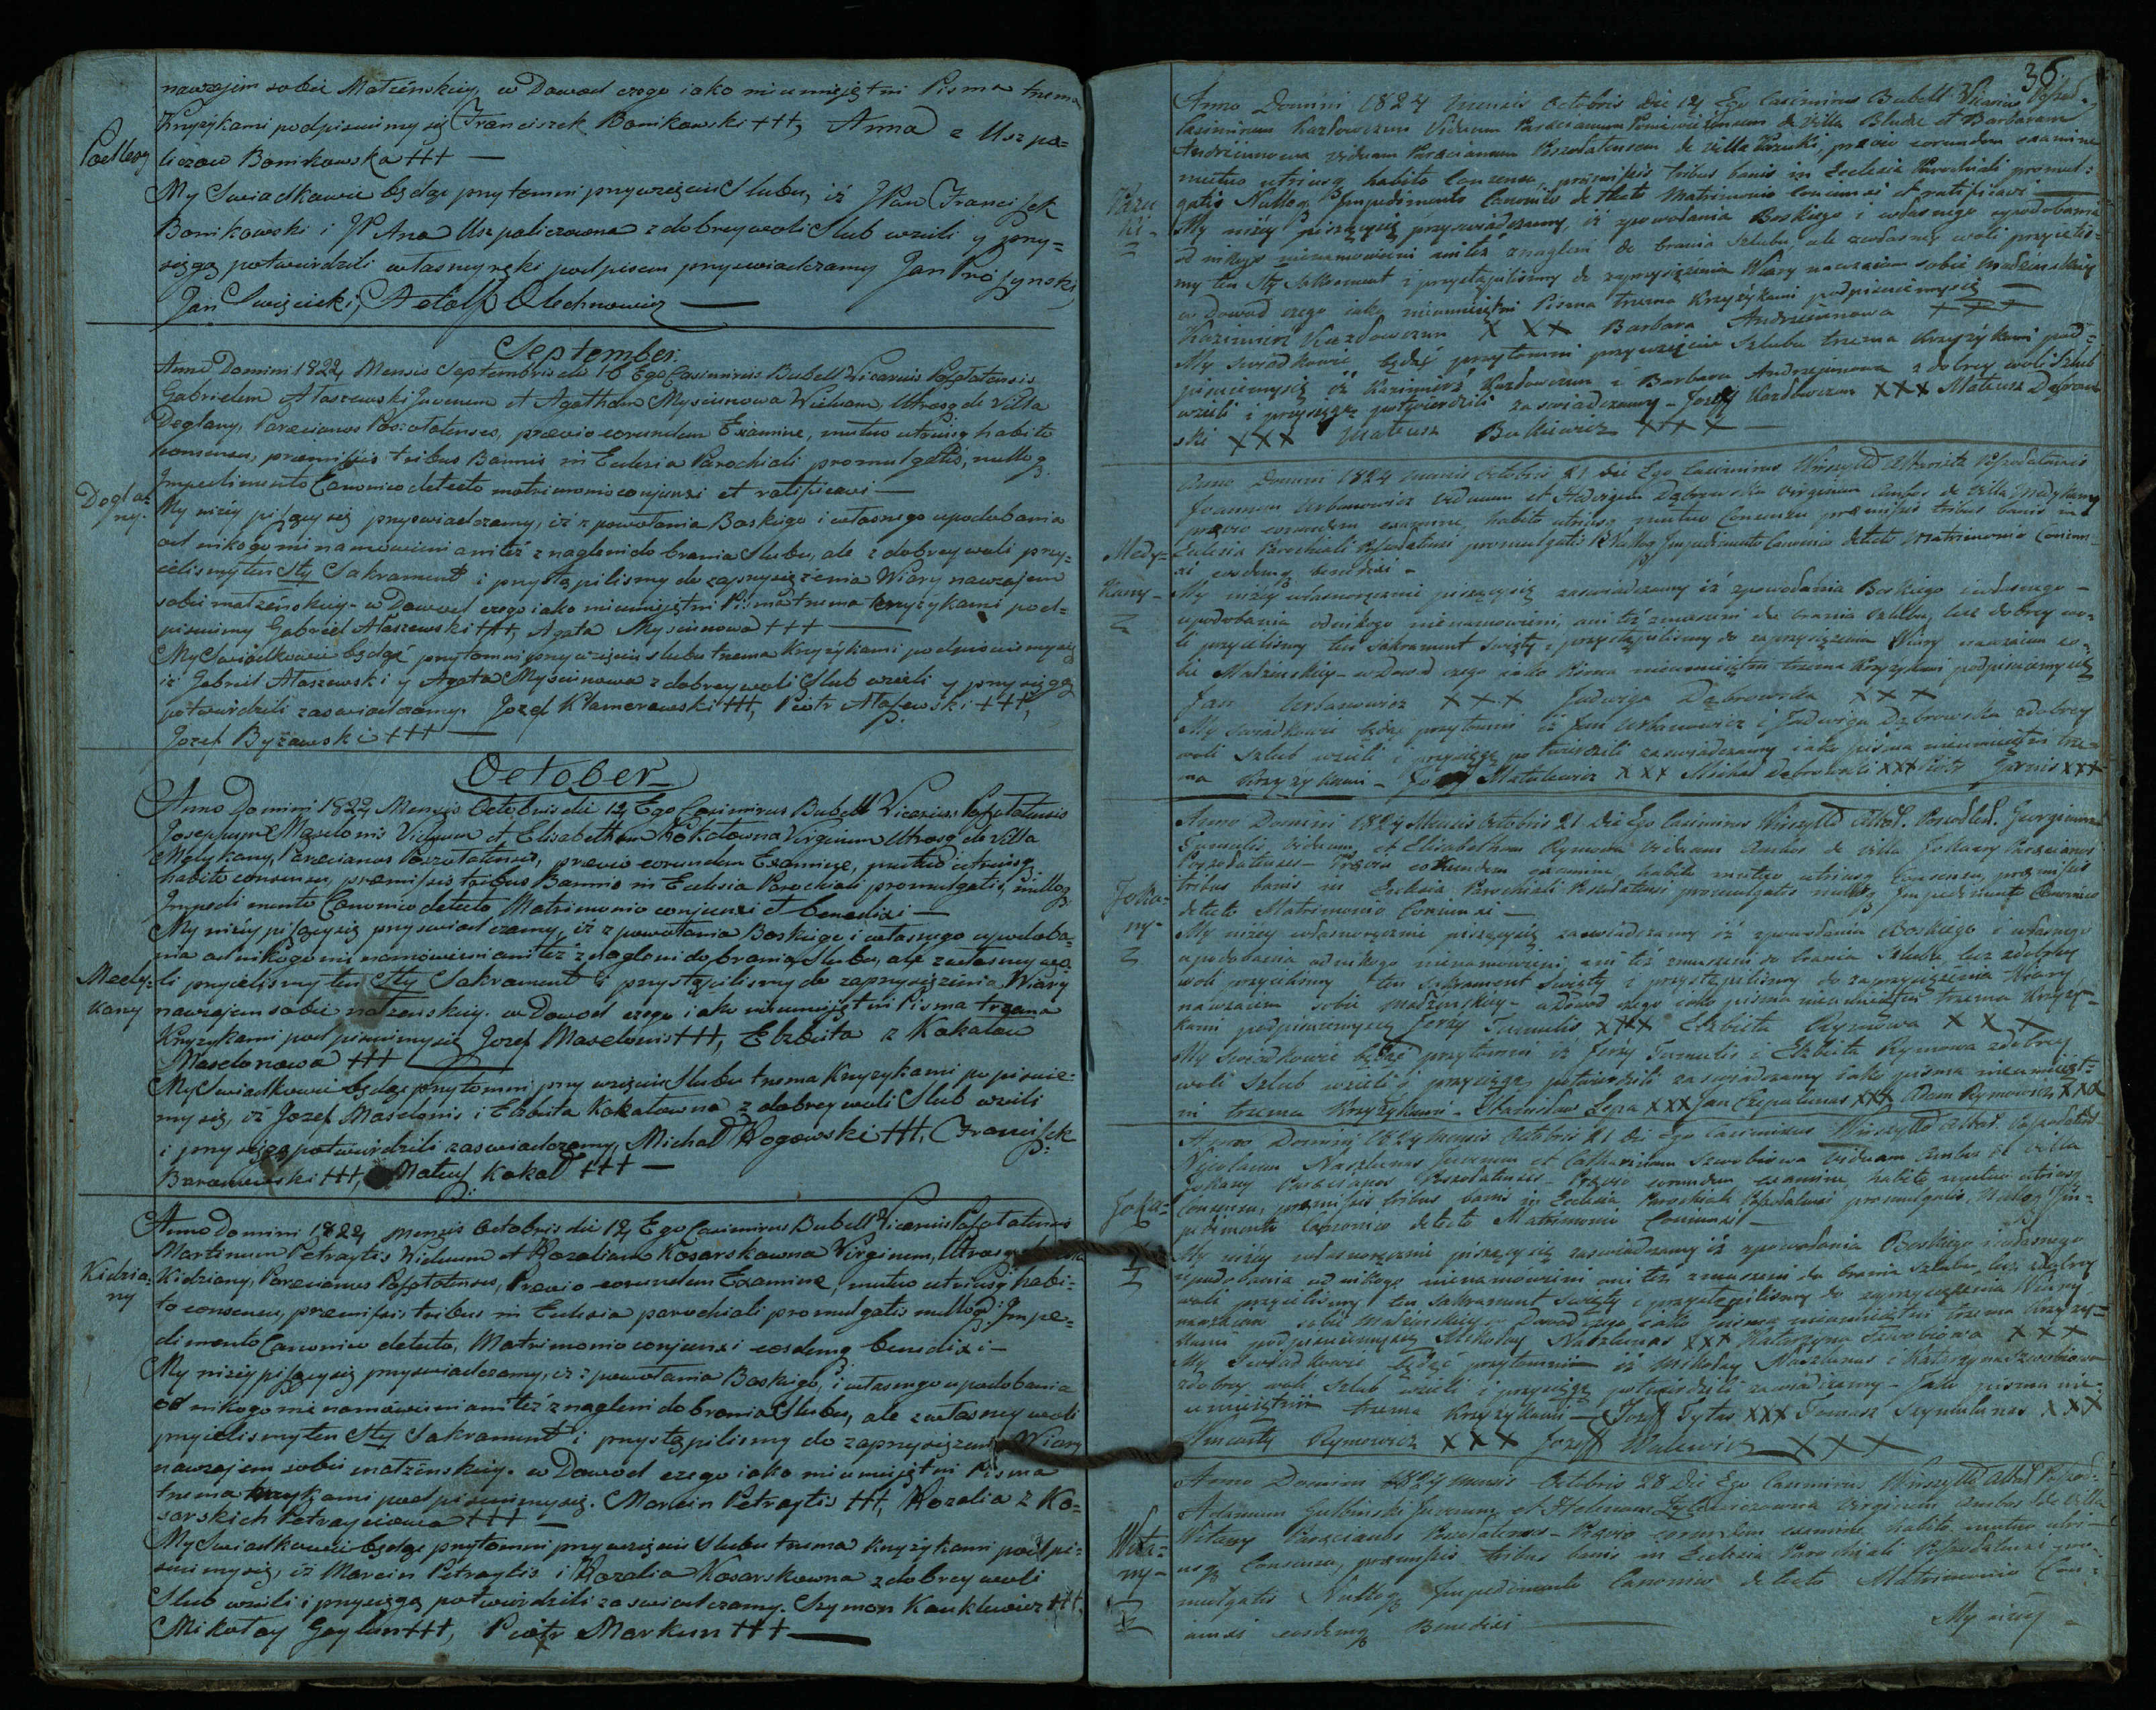 nawzajem sobie Małżeńskiey, w Dowod czego iako nieumiejętni Pisma trzema
Krzyżykami podpisuiemy się Franciszek Bonikowski +++, Anna z Uszpo=
liczow Bonikowska +++ —
My Swiadkowie będąc przytomni przy wzięciu Slubu, iż JPan Franciszek
Bonikowski i JP Anna Uszpoliczowna z dobrey woli Slub wzieli y przy=
sięgą potwierdzili własney ręki podpisem przyswiadczamy Jan
Jan Swięcicki, Adolf Olechnowicz —
September.
Anno Domini 1824 Mensis Septembris die 16 Ego Casimirus Bubell Vicarius Poszołatensis
Gabrielem Ataszewski Juvenem et Agatham Mysciunowa Viduam, Utrosq de Villa
Deglany, Paræcianos Poszołatenses, prævio eorundem Examine, mutuo utriusq habito
consensu, præmissis tribus Bannis in Ecclesia Parochiali promulgatis, nulloq
Degla=
ny.
Impedimento Canonico detecto matrimonio conjunxi et ratificavi —
My niżey piszący się przyswiadczamy, iż z powołania Boskiego i własnego upodobania
od nikogo nie namowieni ani też znagleni do brania Slubu, ale z dobrey woli przy=
ielismy ten Sty Sakrament i przystąpilismy do zaprzysiężenia Wiary nawzajem
sobie małżeńskiey. w Dowod czego iako nieumiejętni Pisma trzema krzyżykami pod=
pisuiemy Gabriel Ataszewski +++, Agata Mysciunowa +++ —
My Swiadkowie będąc przytomni przy wzięciu slubu trzema krzyżykami podpisuiemy się
iż Gabriel Ataszewski y Agata Mysciunowa z dobrey woli Slub wzieli y przysięgą
potwierdzili zaswiadczamy. Jozef Klamerowski +++, Piotr Ataszewski +++,
Jozef Byżawski +++ —
October
Anno Domini 1824 Mensis Octobris die 12 Ego Casimirus Bubell Vicarius Poszołatensis
Josephum Maselonis Viduum et Elisabetham Kokałowna Virginem Utrosq de Villa
Medykany, Paræcianos Poszołatenses, prævio eorundem Examine, mutuo utriusq
habito consensu, præmissis tribus Bannis in Ecclesia Parochiali promulgatis, nulloq
Impedimento Canonico detecto Matrimonio conjunxi et benedixi —
My niżey piszący się przyswiadczamy, iż z powołania Boskiego i własnego upodoba=
nia od nikogo nie namowieni ani też znagleni do brania Slubu, ale z własney wo=
Medy=
kany
li przyielismy ten Sty Sakrament i przystąpilismy do zaprzysiężenia Wiary
nawzajem sobie małżenskiey. w Dowod czego iako nieumiejętni Pisma trzema
Krzyżykami podpisuiemy się Jozef Maselonis +++, Elzbieta z Kokałow
Maselonowa +++
My Swiadkowie będąc przytomni przy wzięciu Slubu trzema Krzyżykami popisuie=
my się, iż Jozef Maselonis i Elzbieta Kokałowna z dobrey woli Slub wzieli
i przysięgą potwierdzili zaswiadczamy, Michał Rogowski +++, Franciszek
Baranowski +++, Mateusz Kokał +++ —
Anno Domini 1824 Mensis Octobris die 12 Ego Casimirus Bubell Vicarius Poszołatensis
Martinum Petraytis Viduum et Rozaliam Kosarskowna Virginem, Utrosq de Villa
Kidzia=
ny
Kidziany, Paræcianos Poszołatenses, Prævio eorundem Examine, mutuo utriusq habi=
to consensu, præmissis tribus in Ecclesia parochiali promulgatis nulloq Impe=
dimento Canonico detecto, Matrimonio conjunxi eosdemq benedixi —
My niżey piszący się przyswiadczamy, iż z powołania Boskiego, i własnego upodobania
od nikogo nie namówieni ani też znagleni do brania Slubu, ale z własney woli
przyielismy ten Sty Sakrament i przystąpilismy do zaprzysiężenia Wiary
nawzajem sobie małżenskiey. w Dowod czego iako nieumiejętni Pisma
trzema krzyżykami podpisuiemy się. Marcin Petraytis +++, Rozalia z Ko=
sarskich Petrayciowa +++ —
My Swiadkowie będąc przytomni przy wzięciu Slubu trzema krzyżykami podpi=
suiemy się, iż Marcin Petraytis i Rozalia Kosarskowna z dobrey woli
Slub wzieli i przysięgą potwierdzili zaswiadczamy. Szymon Kauklewicz +++,
Mikołay Gaylun +++, Piotr Markun +++ —
36
Anno Domini 1824 Mensis Octobris Die 12 Ego Casimirus Bubell Vicarius
Casimirum Kazłowczun Viduum Paræcianum de Villa et Barbaram
Andrzeiunowa viduam Paræcianam Poszołatensem de villa Pazuki, prævio eorundem examine
mutuo utriusq habito Consensu, præmissis tribus banis in Ecclesia Parochiali promul=
gatis Nulloq Impedimento Canonico detecto Matrimonio Coniunxi et ratificavi —
Pazu
ki
My niżey piszący się przyswiadczamy, iż z powołania Boskiego i własnego upodobania
od nikogo nienamowieni ani też znagleni do brania Szlubu, ale z własney woli przyielis=
my ten Sty Sakrament i przystąpilismy do zaprzysiężenia Wiary nawzaiem sobie małżenskiey
w Dowod czego iako nieumieiętni Pisma trzema Krzyżykami podpisuiemy się —
Kazimierz Kazłowczun XXX Barbara Andrzeiunowa +++
My swiadkowie będąc przytomni przy wzięciu Szlubu trzema Krzyżykami pod=
pisuiemy się iż Kazimierz Kazłowczun i Barbara Andrzejunowa z dobrey woli Szlub
wzieli i przysięgą potwierdzili zaswiadczamy — Jozef Kazłowczun XXX Mateusz Dąbrow
ski XXX Mateusz Butkiewicz XXX —
Anno Domini 1824 mensis Octobris 21 die Ego Casimirus
Joannem Urbanowicz viduum et Hedvigem Dąbrowska virginem ambos de Villa Medykany
prævio eorundem examine, habito utriusq mutuo Consensu præmissis tribus banis in
Medy=
kany
Ecclesia Parochiali promulgatis Nulloq Impedimento Canonico detecto Matrimonio Coniun=
xi eosdemq benedixi —
My niżey własnoręcznie piszący się zaswiadczamy iż z powołania Boskiego i własnego
upodobania od nikogo nienamowieni, ani też zmuszeni do brania szlubu, lecz dobrey wo=
li przyielismy ten sakrament swięty i przystąpilismy do zaprzysiężenia Wiary nawzaiem so=
bie Małżenskiey — w Dowod czego iako Pisma nieumieiętni trzema krzyżykami podpisuiemy się
Jan Urbanowicz XXX Jadwiga Dąbrowska XXX
My swiadkowie będąc przytomni iż Jan Urbanowicz i Jadwiga Dąbrowska z dobrey
woli Szlub wzieli i przysięgą potwierdzili zaswiadczamy iako pisma nieumieiętni trze=
ma Krzyżykami — Jozef Matulewicz XXX Michał Dąbrowski XXX Piotr XXX
Anno Domini 1824 Mensis Octobris 21 Die Ego Casimirus Georgium
Tamulis viduum et Elisabetham Rymowa viduam ambos de villa Jokany Paræcianos
Poszołatenses — Prævio eorundem examine, habito mutuo utriusq Consensu, præmissis
Joka=
ny
tribus banis in Ecclesia Parochiali promulgatis nulloq Impedimento Canonico
detecto Matrimonio Coniunxi —
My niżey własnoręcznie piszący się zaswiadczamy iż z powołania Boskiego i własnego
upodobania od nikogo nienamowieni, ani też zmuszeni do brania Szlubu, lecz z dobrey
woli przyielismy ten sakrament swięty i przystąpilismy do zaprzysiężenia Wiary
nawzaiem sobie małżenskiey — w Dowod czego iako pisma nieumieiętni trzema krzyży=
kami podpisuiemy się Jerzy Tamulis XXX Elzbieta Rymowa XXX
My Swiadkowie będąc przytomni iż Jerzy Tamulis i Elzbieta Rymowa z dobrey
woli Szlub wzieli i przysięgą potwierdzili zaswiadczamy iako pisma nieumieięt=
ni trzema Krzyżykami — Stanisław Lepa XXX Jan XXX Adam Rymowicz XXX
Anno Domini 1824 mensis Octobris 21 Die Ego Casimirus
Nicolaum Naszlunas Juvenem et Catharinam Szwobiowa Viduam ambos de villa
Jokany Paræcianos Poszołatenses — Prævio eorundem examine, habito mutuo utriusq
Joka=
ny
Consensu, præmissis tribus banis in Ecclesia Parochiali promulgatis, Nulloq Im=
pedimento Canonico detecto Matrimonio Coniunxi —
My niżey własnoręcznie piszący się zaswiadczamy iż z powołania Boskiego i własnego
upodobania od nikogo nienamówieni ani też zmuszeni do brania Szlubu, lecz z dobrey
woli przyielismy ten Sakrament swięty i przystąpilismy do zaprzysiężenia Wiary
nawzaiem sobie małżenskiey — Dowod czego iako pisma nieumieiętni trzema krzyży=
kami podpisuiemy się Mikołay Naszlunas XXX Katarzyna Szwobiowa XXX
My Swiadkowie będąc przytomni iż Mikołay Naszlunas i Katarzyna Szwobiowa
z dobrey woli Szlub wzieli i przysięgą potwierdzili zaswiadczamy — Jako pisma nie=
umieiętni trzema Krzyżykami — Jozeff Tytas XXX Tomasz XXX
Wincenty Rymowicz XXX Jozeff Walewicz XXX
Anno Domini 1824 mensis Octobris 28 Die Ego Casimirus
Adamum Gulbinski Juvenem et Helenam virginem ambos de Villa
Wita=
ny
Witany Paræcianos Poszołatenses — Prævio eorundem examine habito mutuo utri=
usq Consensu, præmissis tribus banis in Ecclesia Parochiali pro=
mulgatis Nulloq Impedimento Canonico detecto Matrimonio Con=
iunxi eosdemq Benedixi —
My niżey =